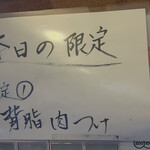 今日の限定
定①
背脂肉つけ